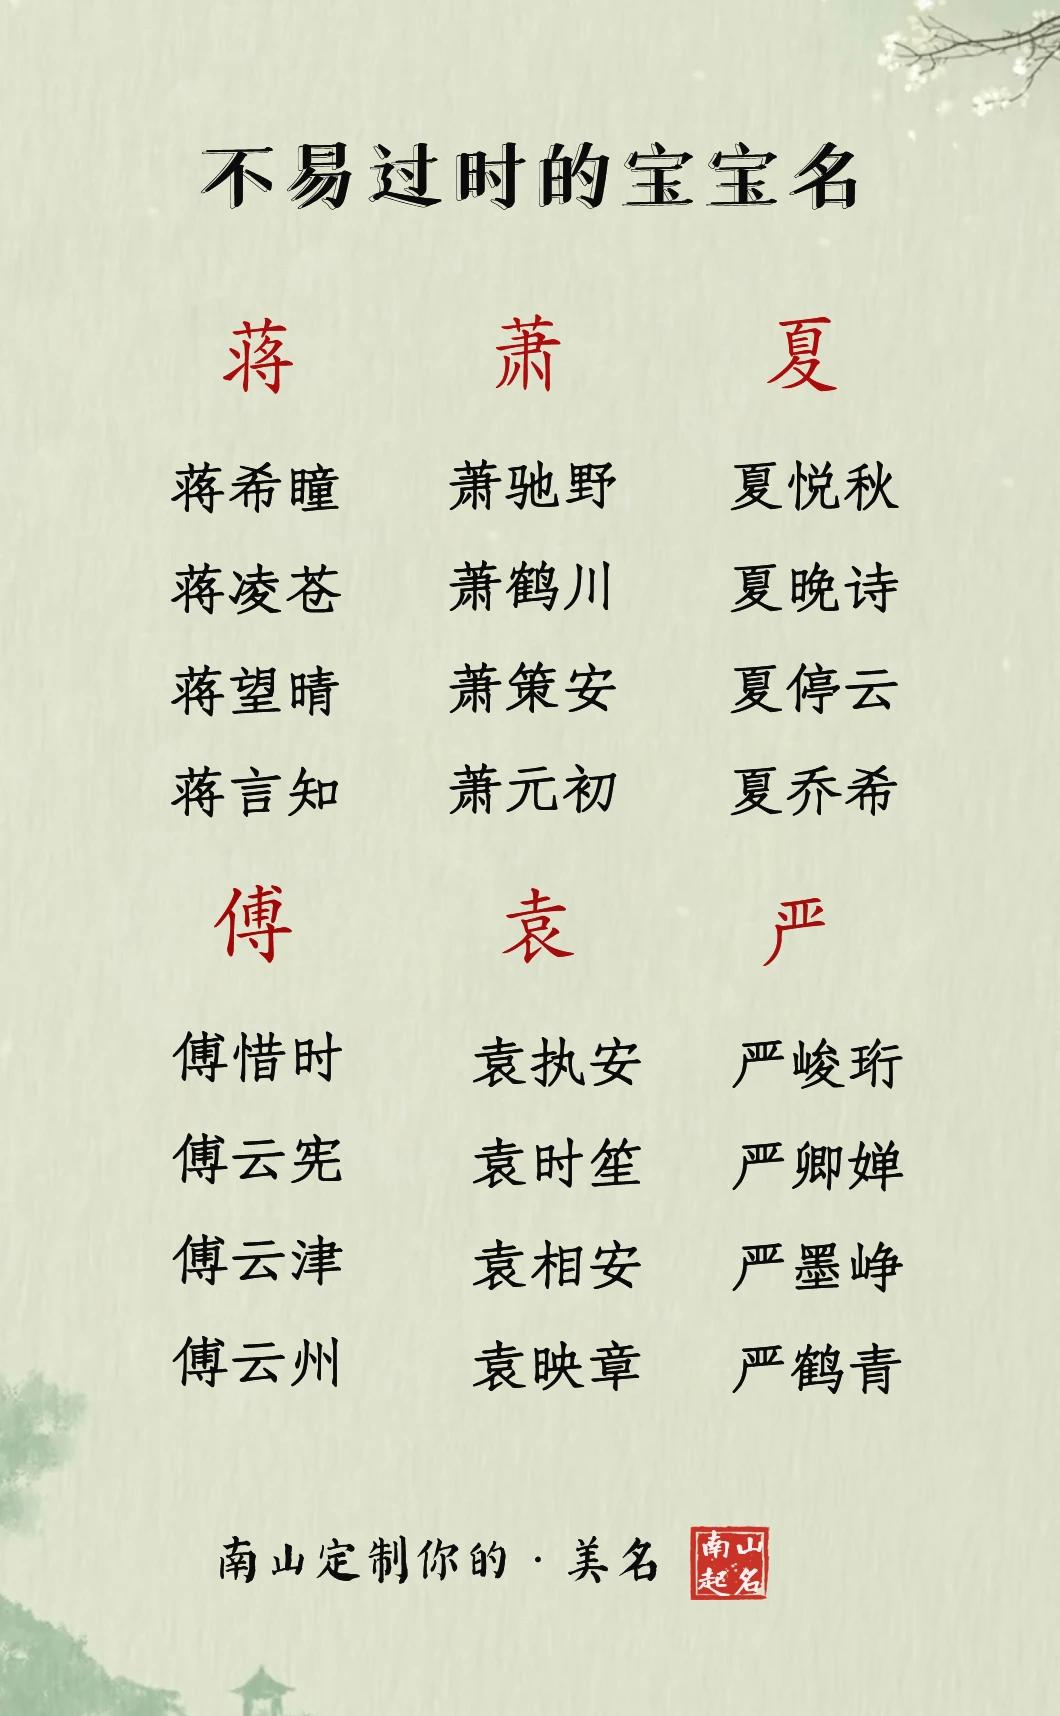 不易过时的宝宝名
蒋 萧 夏
蒋希瞳 萧驰野 夏悦秋
蒋凌苍 萧鹤川 夏晚诗
蒋望晴 萧策安 夏停云
蒋言知 萧元初 夏乔希
傅 袁 严
傅惜时 袁执安 严峻珩
傅云宪 袁时笙 严卿婵
傅云津 袁相安 严墨峥
傅云州 袁映章 严鹤青
南山定制你的·美名
南山
起名